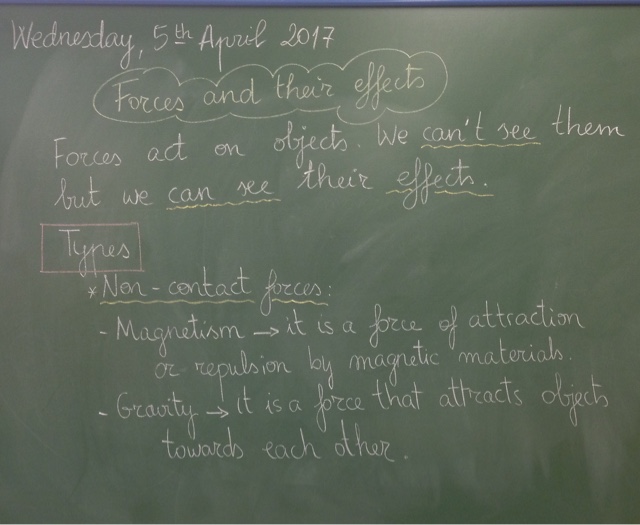 Wednesday, 5th April 2017
Forces and their effects
Forces act on objects. We can't see them
but we can see their effects.
Types
* Non-contact forces:
- Magnetism → it is a force of attraction
or repulsion by magnetic materials.
- Gravity → it is a force that attracts objects
towards each other.